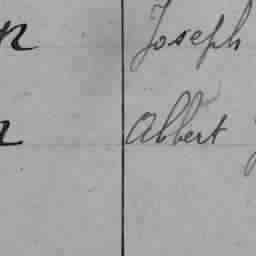 n Joseph
n Albert